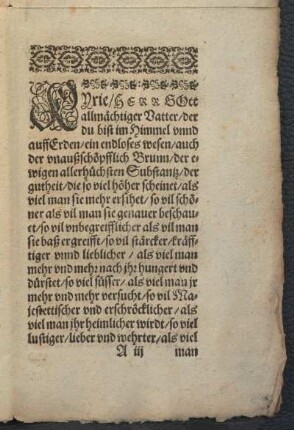 KYrie/HERR GOtt
allmächtiger Vatter/der
du bist im Himmel vnnd
auff Erden/ein endloses wesen/auch
der vnaußschöpfflich Brunn/der e-
wigen allerhüchsten Substantz/der
gutheit/die so viel höher scheinet/als
viel man sie mehr ersihet/so vil schö-
ner als vil man sie genauer beschau-
et/so vil vnbegreifflicher als vil man
sie baß ergreifft/so vil stärcker/kräff-
tiger vnnd lieblicher/als viel man
mehr vnd mehr nach jhr hungert vnd
dürstet/so viel süsser/als viel man jr
mehr vnd mehr versucht/so vil Ma-
jestettischer vnd erschröcklicher/als
viel man jhr heimlicher wirdt/so viel
lustiger/lieber vnd wehrter/als viel
A iij man